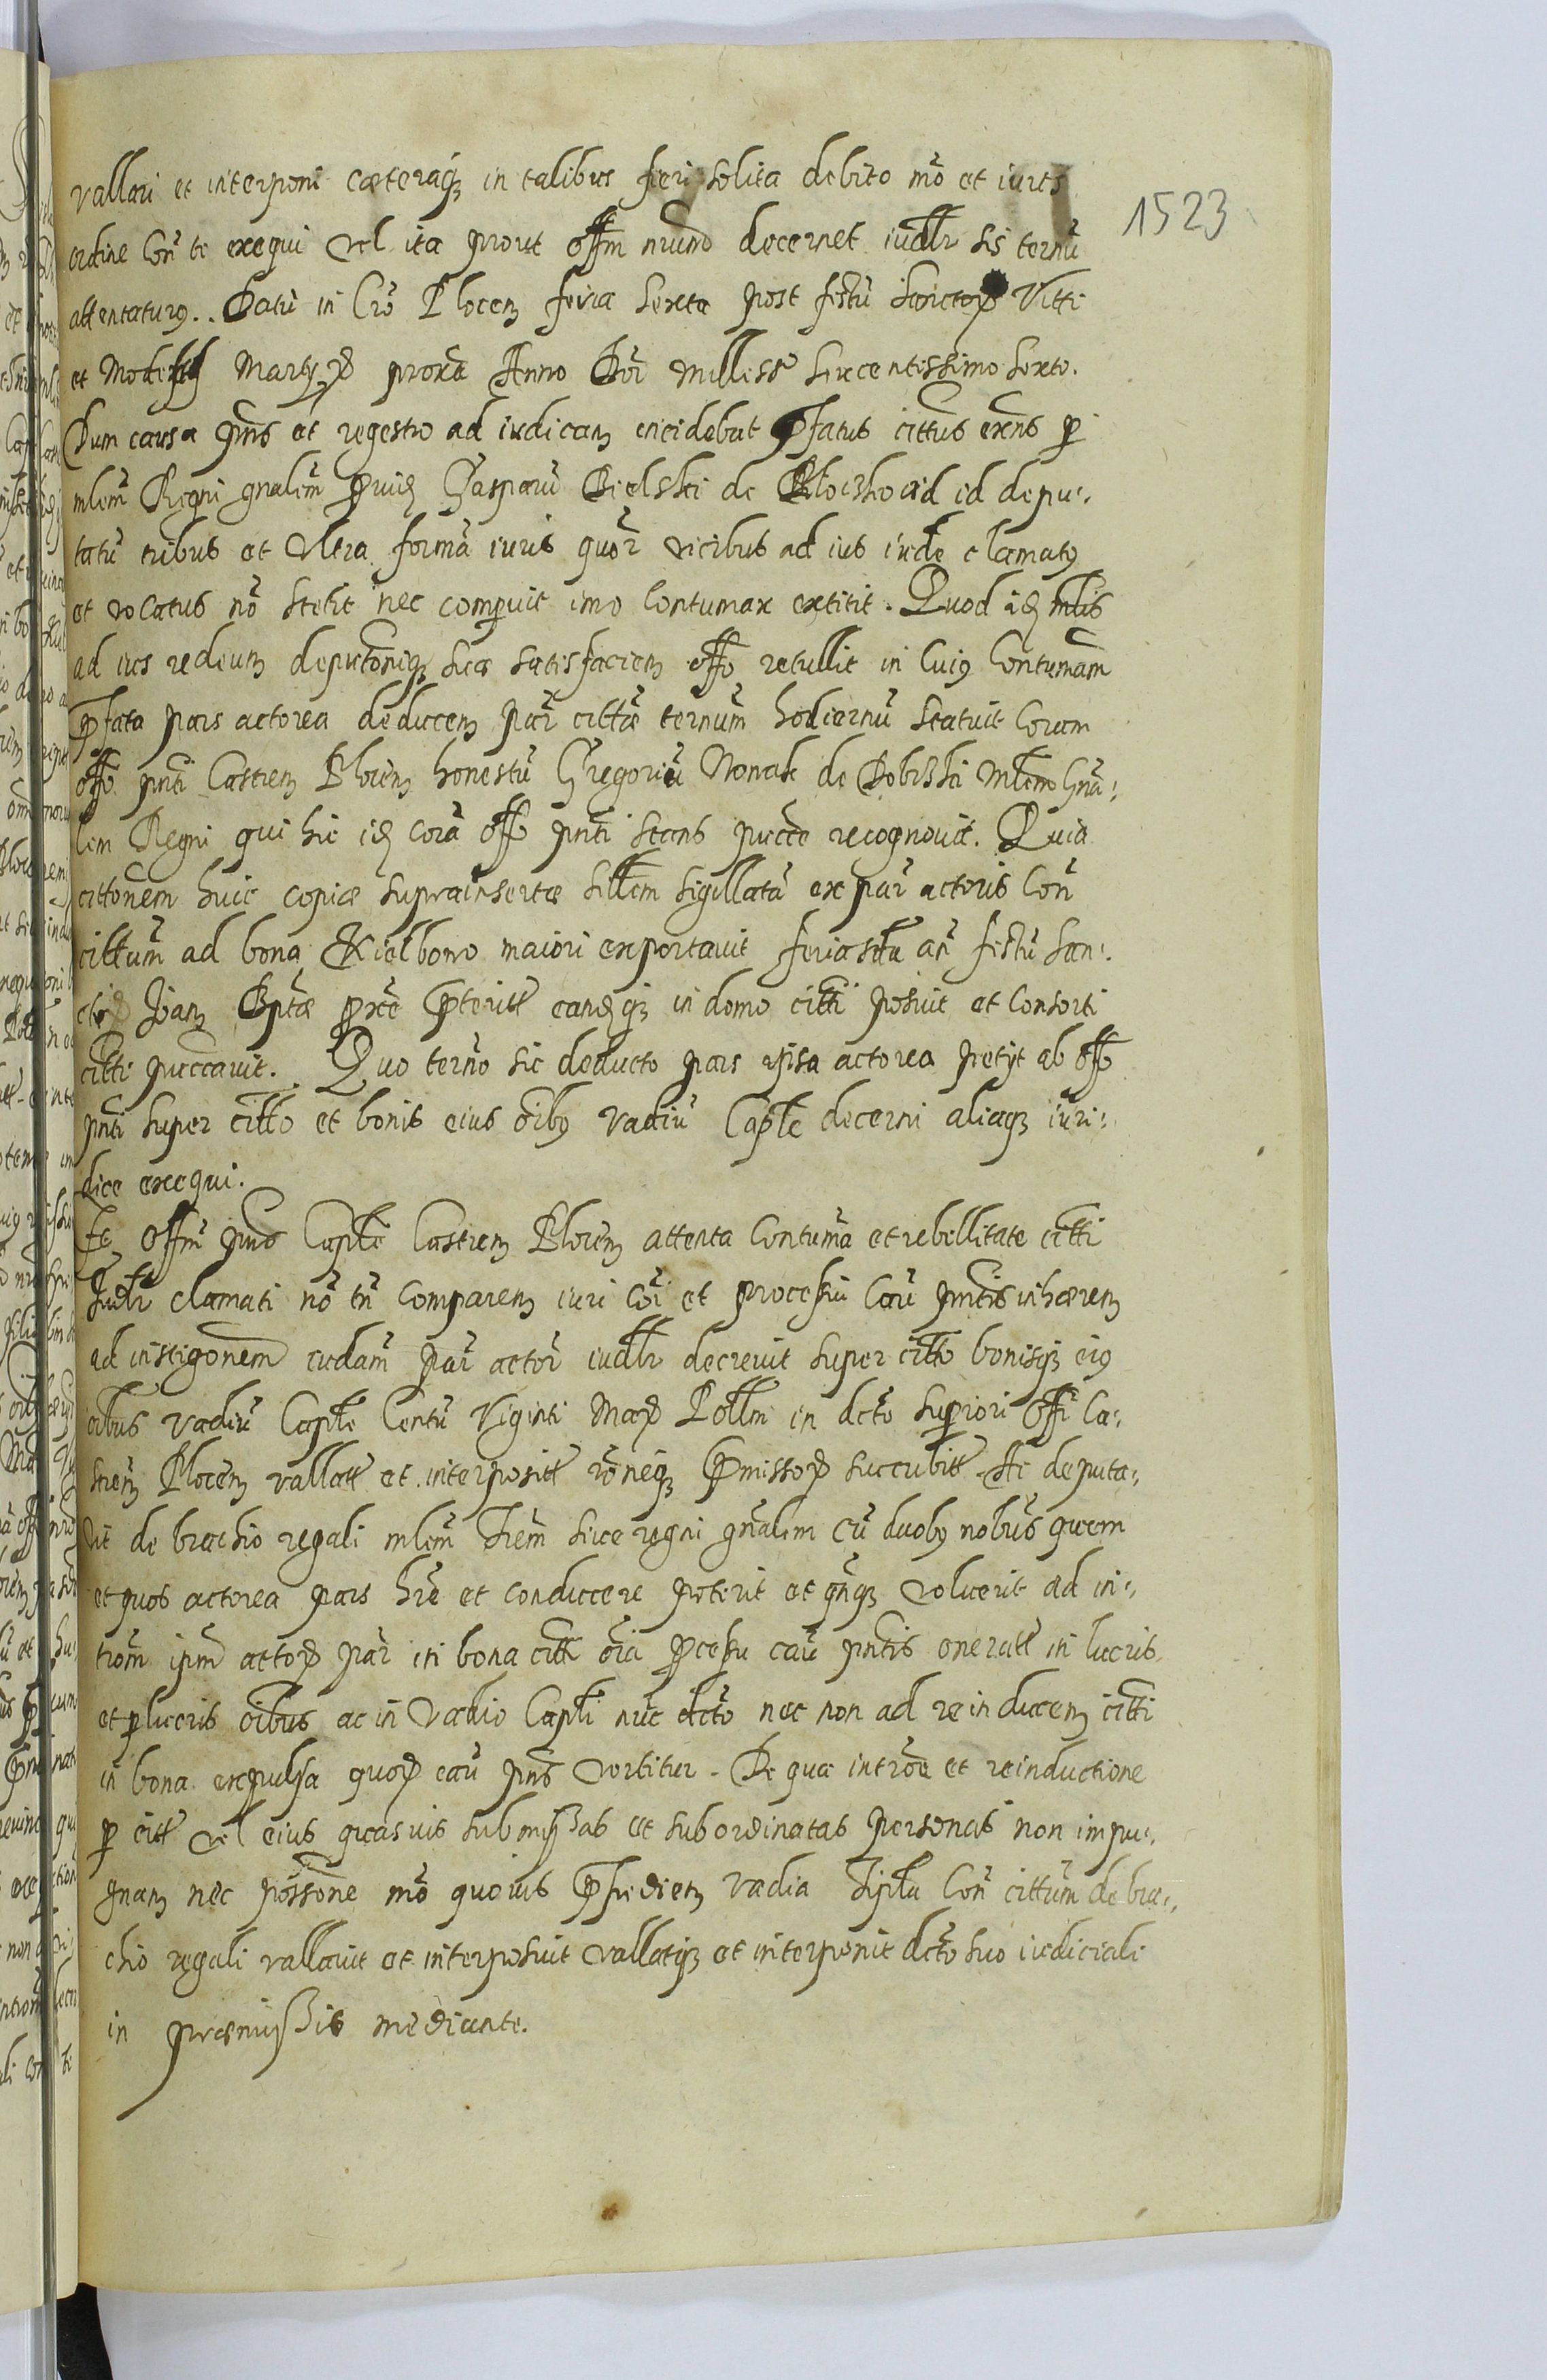 vallari et interponi cæteraqz in talibus fieri solita debito mō et iuris
1523
ordine Con̄ te exequi vel ita prout offm nrum decernet iudlr sis ternū
attentaturq. Datū in Crō Plocen feria sexta post festū Sanctoꝝ Viti
et Modesti Martyꝝ proxa Anno Dni Millessᵒ sexcentissimo sexto.
Dum causa pns et regestro ad iudican incidebat Pfatus cittus exens ꝑ
mlem Regni gnalem ꝓuid Gasparū Bielski de ad id depu-
tatū tribus et Vltra formā iuris quor vicibus ad ius iude clamatq
et vocatus nō stetit nec comparuit imo Contumax extitit. Quod id mlis
ad ius redeun deputoniqz suæ satisfacien offo retullit in Cuiq Contumam
Pfata pars actorea deducen par cittæ ternum hodiernū statuit Coram
offo pnti Castren Plocen honestū Gregoriū Nonak de Dobrski Mlem Gna-
lem Regni qui hic id corā offo pnti stans publce recognouit. Quia
cittonem huic copiæ suprainsertæ sillem sigillatā ex par actoris Con̄
cittum ad bona Kielbowo maiori exportauit feria sctā an̄ festū San-
ctiꝝ Joan Bptæ pxe Pteritt eandqz in domo citti posuit et Consorti
citti publcauit. Quo terno sic deducto pars ipsa actorea petijt ab offo
pnti super citto et bonis eius oibq vadiū Caplē decerni aliaqz iuri-
dice exequi.
Et Offm pns Caplē Castren Plocen attenta Contuma et rebellitate citti
Iudlr clamati nō tn̄ comparen iuri Coi et processui Cau pntis inhæren
ad instigonem eiudam par actor iudlr decreuit super citto bonisqz eiq
oibus vadiū Caplē Centū Viginti Maꝝ Polllm in dcto superiori Offi Ca-
stren Plocen vallatt et interpositt roneqz Pmissoꝝ succubitt. Ac deputa-
vit de brachio regali mlem Trem siue regni gnalem cū duobq nobus quem
et quos actorea pars hre et conducere poterit et qnqz voluerit ad in-
trom ipm actoꝝ par in bona citti oia pcessu cau pntis oneratt in lucris
et plucris oibus ac in Vadio Capli nuc dcto nec non ad reinducen citti
in bona expulsa quoꝝ cau pns vertitur. De qua introe et reinductione
ꝑ citt vel eius quasuis submissas et subordinatas personas non impu-
gnan nec possone mō quouis Pfiedien vadia Tripla Con̄ cittum de bra-
chio regali vallauit et interposuit vallatqz et interponit dcto suo iudiciali
in præmissis mediante.